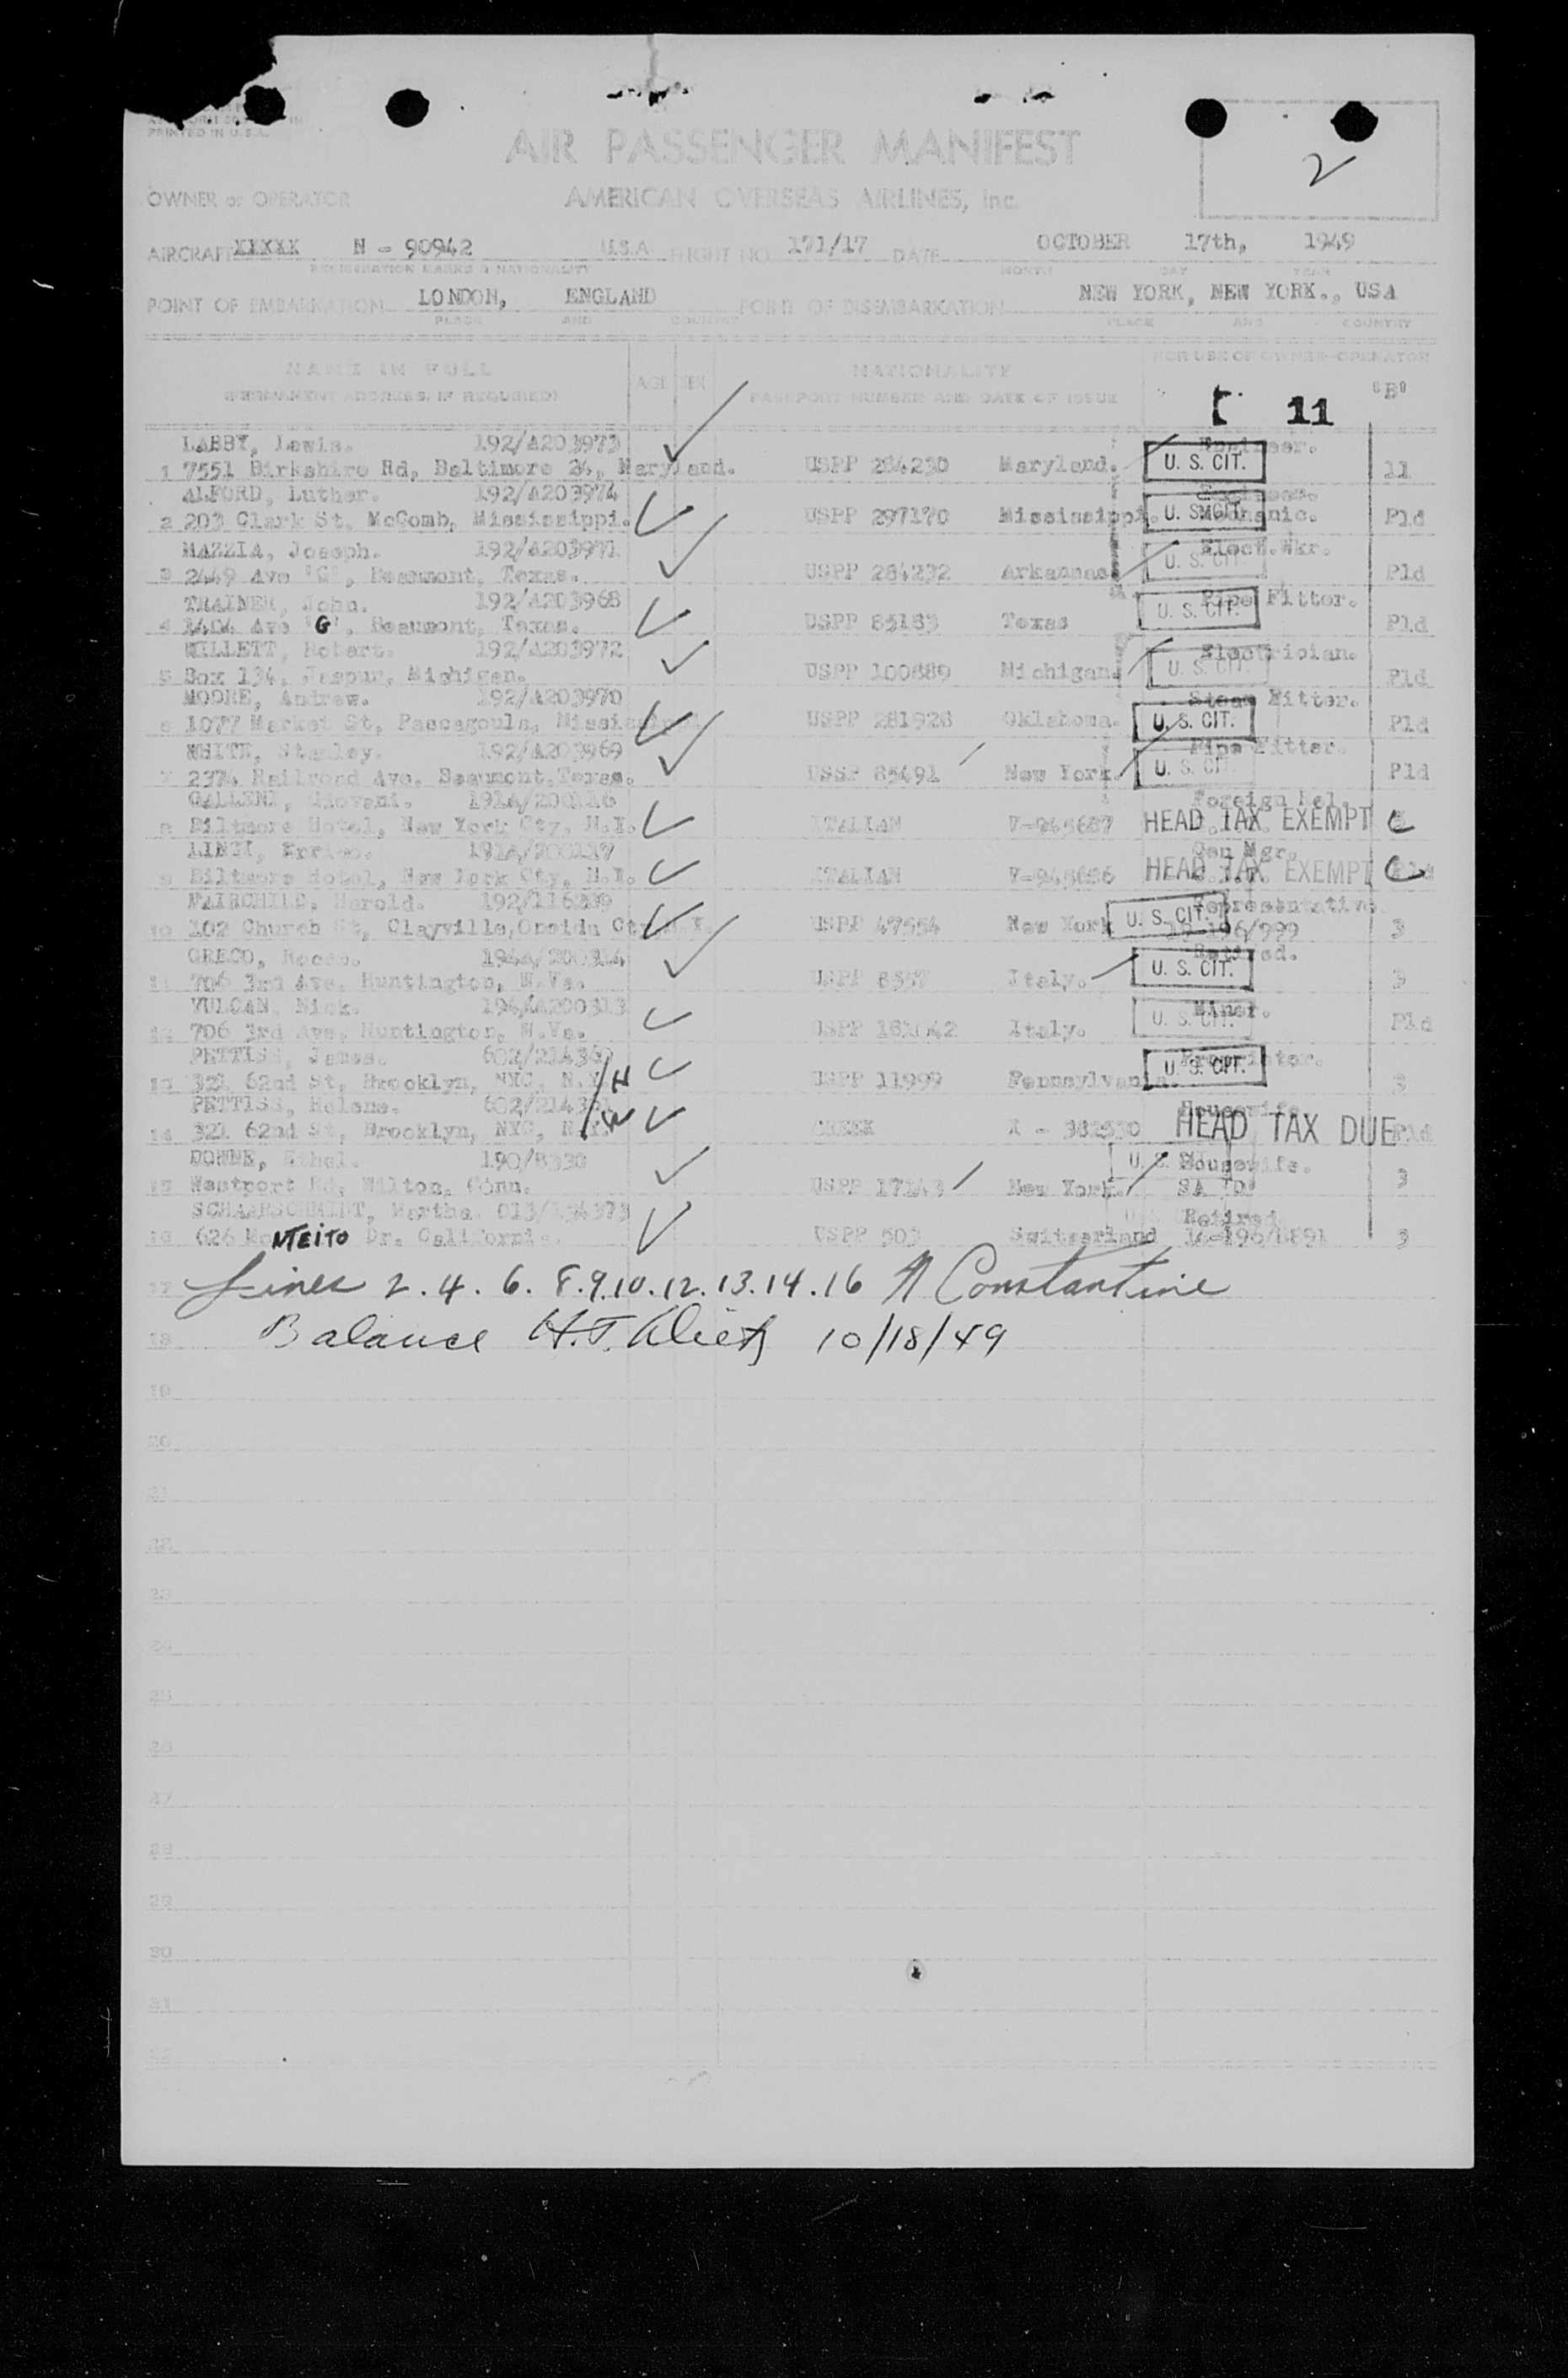 PRINTED IN U.S.A.
2
AIR PASSENGER MANIFEST
OWNER or OPERATOR AMERICAN OVERSEAS AIRLINES, Inc.
AIRCRAFT XXXXX N - 90942 U.S.A FLIGHT NO. 171/17 DATE OCTOBER 17th, 1949
REGISTRATION MARKS & NATIONALITY MONTH DAY YEAR
POINT OF EMBARKATION LONDON, ENGLAND POINT OF DISEMBARKATION NEW YORK, NEW YORK., USA
PLACE AND COUNTRY PLACE AND COUNTRY
NAME IN FULL AGE SEX NATIONALITY FOR USE OF OWNER-OPERATOR
(PERMANENT ADDRESS, IF REQUIRED) PASSPORT NUMBER AND DATE OF ISSUE "B"
11
LABBY, Lewis. 192/A203973 Engineer.
1 7551 Birkshire Rd, Baltimore 24, Maryland. USPP 284230 Maryland. U. S. CIT. 11
ALFORD, Luther. 192/A203974
2 203 Clark St, McComb, Mississippi. USPP 297170 Mississippi. U. S. CIT. Mechanic. Pld
MAZZIA, Joseph. 192/A203971 Elect.Wkr.
3 2449 Ave 'G', Beaumont, Texas. USPP 284232 Arkansas U. S. CIT. Pld
TRAINER, John. 192/A203968 Pipe Fitter.
4 1404 Ave 'G', Beaumont, Texas. USPP 85183 Texas U. S. CIT. Pld
WILLETT, Robert. 192/A203972 Electrician.
5 Box 134, Michigan. USPP 100889 Michigan. U. S. CIT. Pld
MOORE, Andrew. 192/A203970 Steam Fitter.
6 1077 Market St, Pascagoula, USPP 281928 Oklahoma. U. S. CIT. Pld
WHITE, Stanley. 192/A203969 Pipe Fitter.
7 2374 Railroad Ave. Beaumont, Texas. USSP 85491 New York. U. S. CIT. Pld
GALLENI, Giovani. 191A/200116 Foreign Rel.
8 Biltmore Hotel, New York Cty, N.Y. ITALIAN V-945687 HEAD TAX EXEMPT C
191A/200117 Gen Mgr.
9 Biltmore Hotel, New York Cty, N.Y. ITALIAN HEAD TAX EXEMPT C
FAIRCHILD, Harold. Representative.
10 102 Church St, Clayville, Oneida USPP 47554 New York U. S. CIT. 3
GRECO, Rocco. 194A/200314 Retired.
11 706 3rd Ave, Huntington, W.Va. USPP Italy. U. S. CIT. 3
VULCAN, Nick. 194/A200313 Miner.
12 706 3rd Ave, Huntington, W.Va. USPP Italy. U. S. CIT. Pld
PETTISS, James. Proprietor.
13 321 62nd St, Brooklyn, NYC, N.Y. H USPP 11999 Pennsylvania. U. S. CIT. 3
PETTISS, Helene. Housewife.
14 321 62nd St, Brooklyn, NYC, N.Y. W GREEK HEAD TAX DUE Pld
DOWNE, Ethel. 190/8330 Housewife.
15 Westport Rd, Wilton, Conn. USPP 17143 New York. 3
SCHAARSCHMIDT, Martha. Retired
16 626 MoNTEITO Dr. California. USPP 503 Switzerland 3
17 Lines 2.4.6.8.9.10.12.13.14.16 A Constantine
18 Balance 10/18/49
19
20
21
22
23
24
25
26
27
28
29
30
31